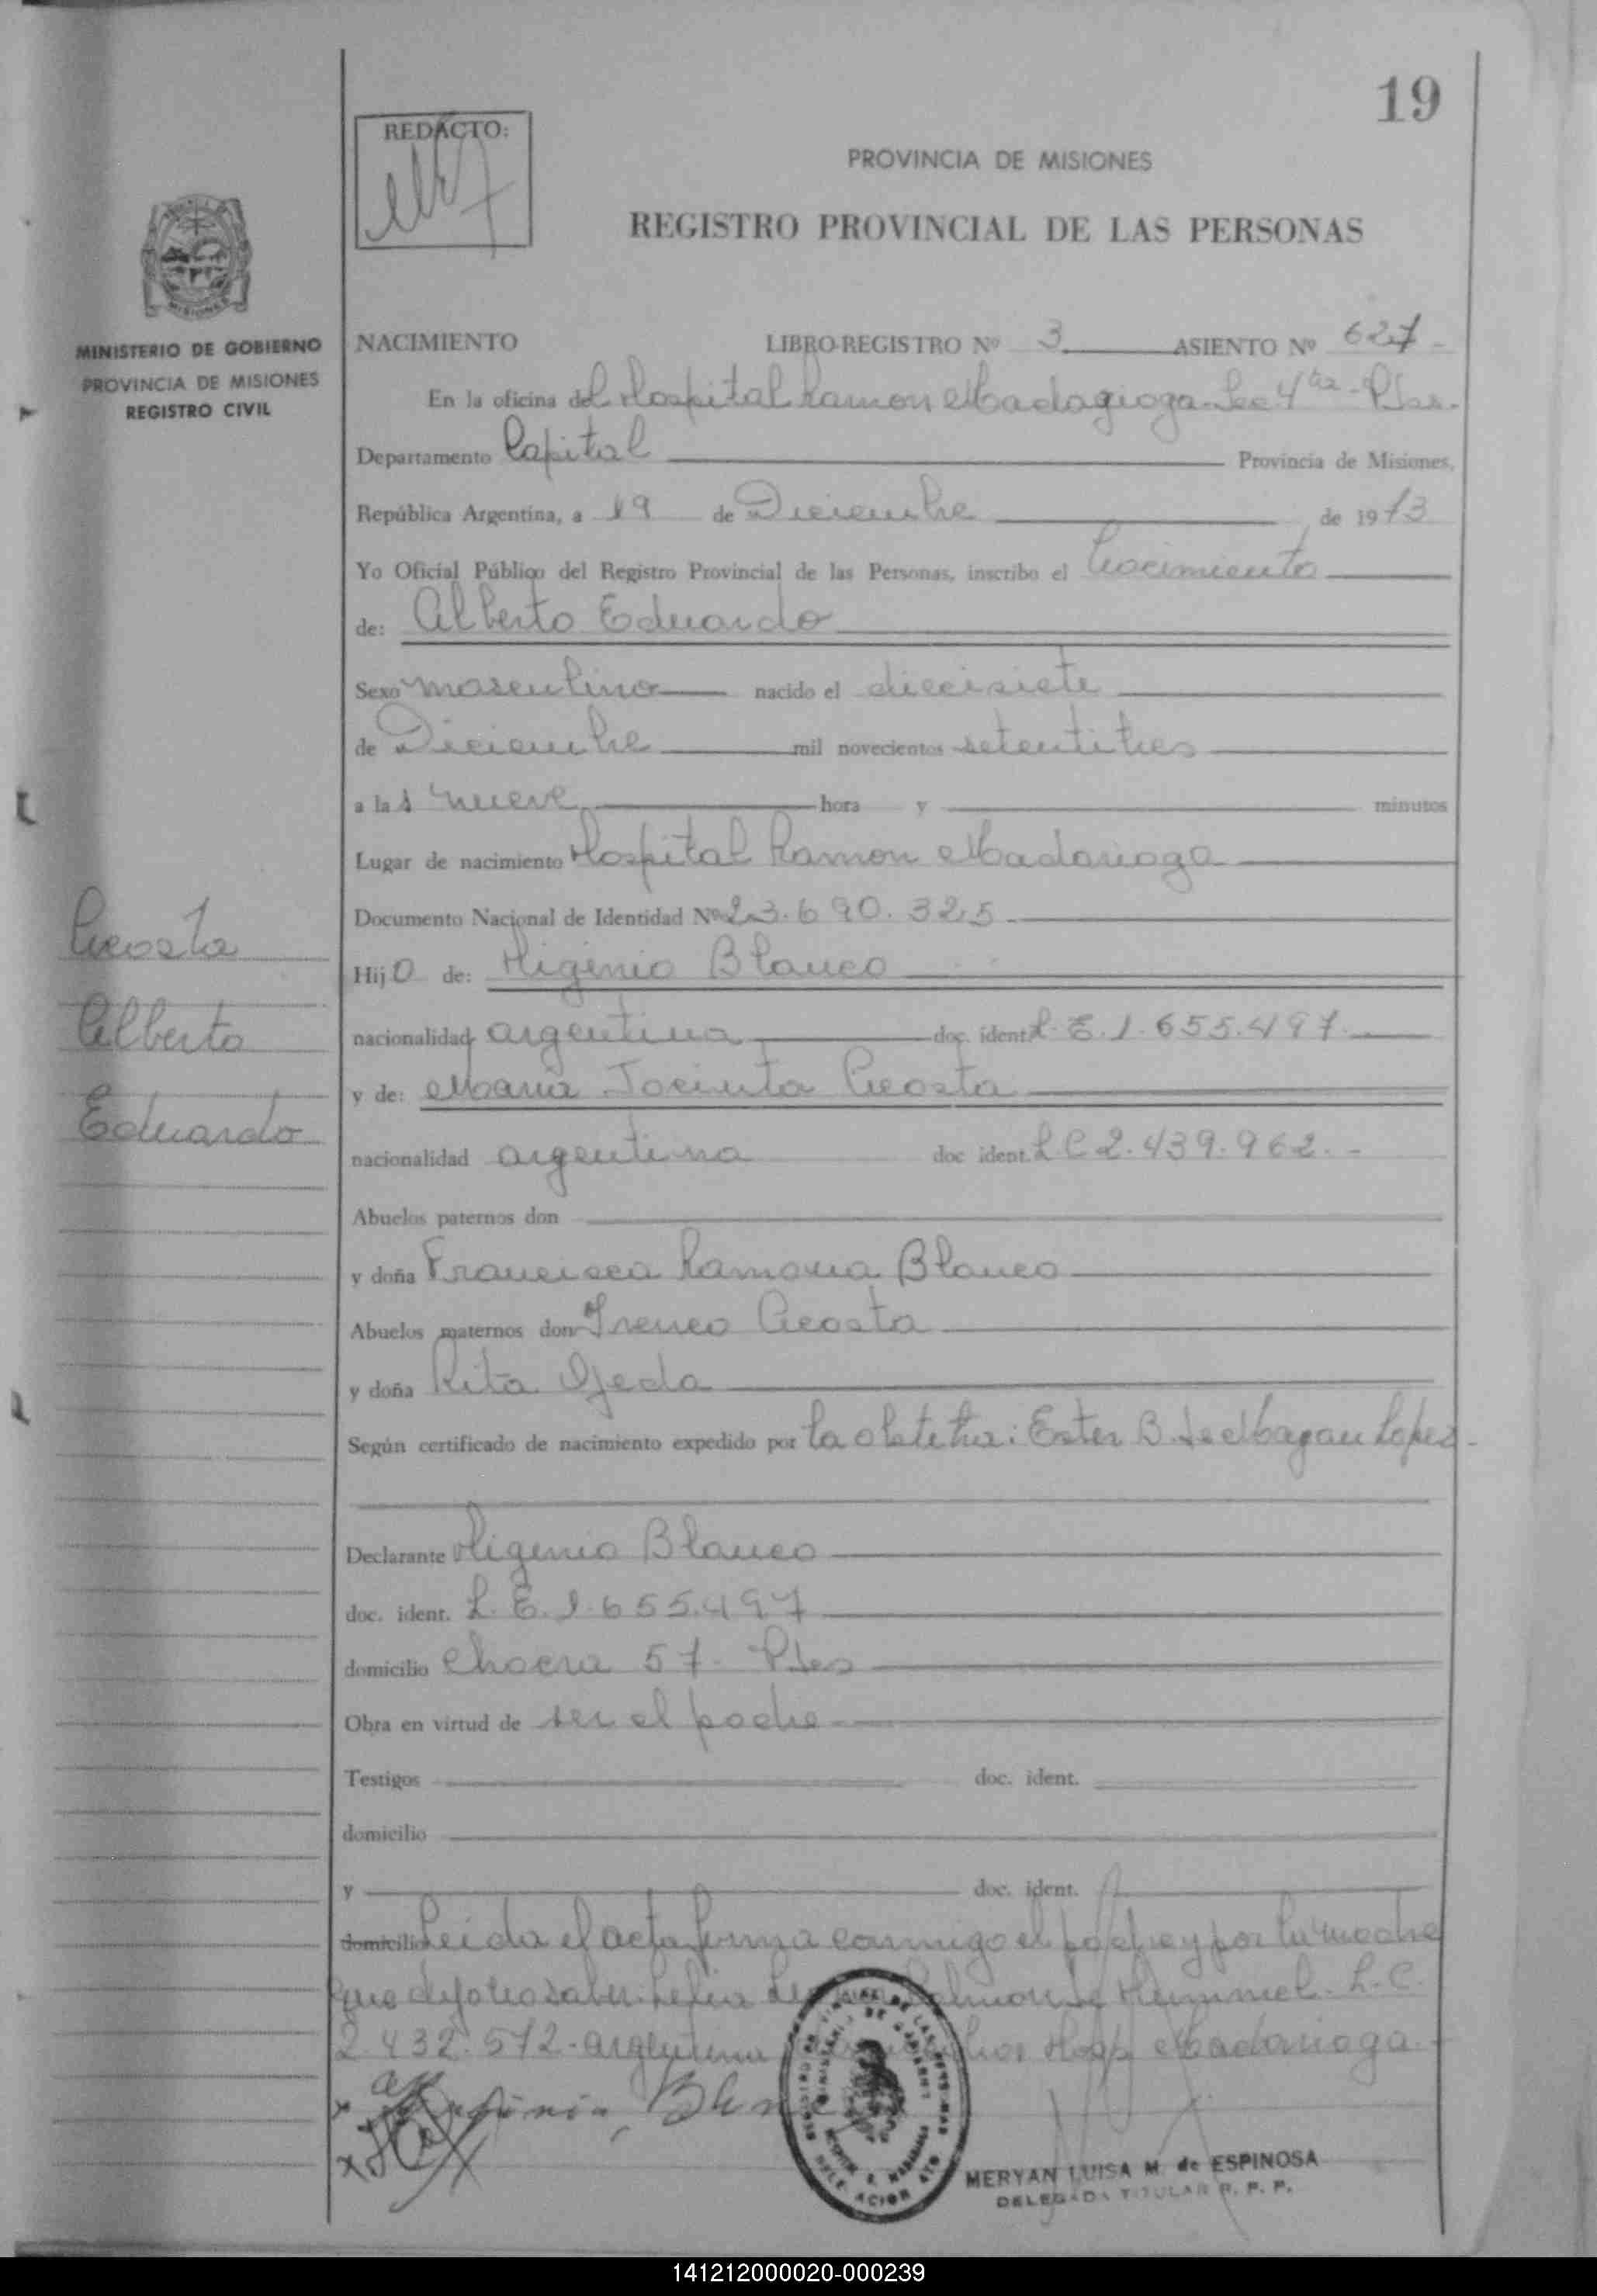 19
REDACTO:
PROVINCIA DE MISIONES
REGISTRO PROVINCIAL DE LAS PERSONAS
MISIONES
MINISTERIO DE GOBIERNO
PROVINCIA DE MISIONES
REGISTRO CIVIL
NACIMIENTO LIBRO-REGISTRO Nº 3 ASIENTO Nº 627
En la oficina del Hospital Ramon Madagioga Sec 4ta - Pdas.
Departamento Capital Provincia de Misiones,
República Argentina, a 19 de Diciembre de 1973
Yo Oficial Público del Registro Provincial de las Personas, inscribo el Nacimiento
de: Alberto Eduardo
Sexo masculino nacido el diecisiete
de Diciembre mil novecientos setentitres
a las nueve hora y minutos
Lugar de nacimiento Hospital Ramon Madariaga
Documento Nacional de Identidad Nº 23.690.325
Hijo de: Higinio Blanco
nacionalidad argentina doc. ident. L.E. 1.655.497
y de: Maria Jacinta Acosta
nacionalidad argentina doc ident. L.C 2.439.962.-
Abuelos paternos don
y doña Francisca Ramona Blanco
Abuelos maternos don Ireneo Acosta
y doña Rita Ojeda
Según certificado de nacimiento expedido por la obstetra: Ester B. de Magan Lopez
Declarante Higinio Blanco
doc. ident. L.E. 1.655.497
domicilio Chacra 57. Pdas
Obra en virtud de ser el padre
Testigos doc. ident.
domicilio
y doc. ident.
domicilio Leida el acta firma conmigo el padre y por la madre
que dijo no saber: Lelia de Hummel. L.C.
2.432.572-argentina Hosp Madariaga.
Higinio Blanco
MERYAN LUISA M. de ESPINOSA
DELEGADA TITULAR R. P. P.
Acosta
Alberto
Eduardo
141212000020-000239